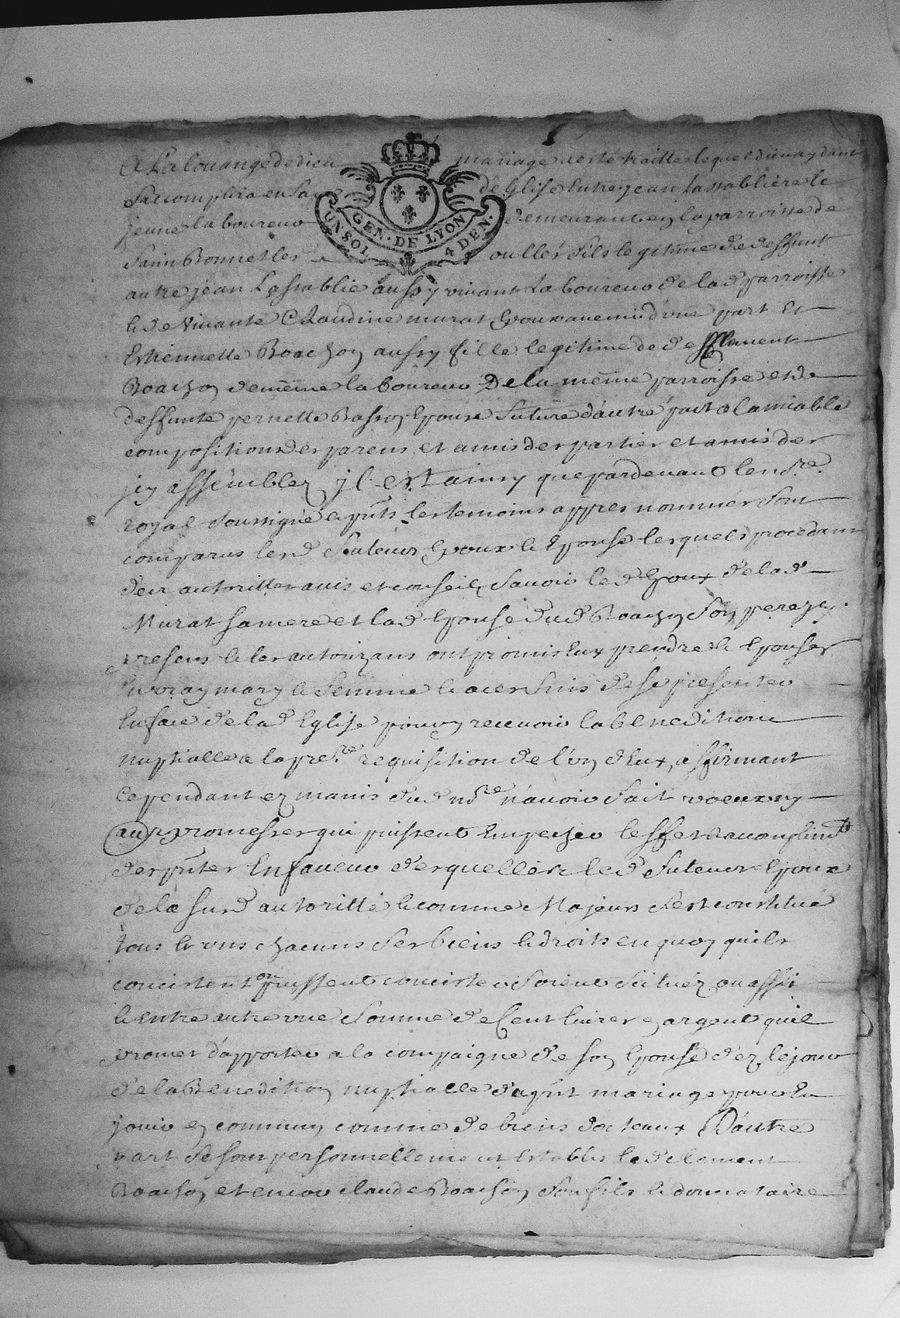 A La louange de dieu mariage a esté traitté lequel dieu aydant
S'accomplira en Sa Ste Eglise Entre jean Lastablière le
jeune laboureur demeurant en la parroisse de
Saint Bonnet les oulles fils legitime de deffunt
GEN. DE LYON
UN SOL 4 DEN.
autre jean Lastablie aussy vivant Laboureur de lad parroisse
& de vivante Claudine murat Epoux avenir d'une part Et
Estiennette Boachon aussy fille legitime de Clement
Boachon de mesme laboureur De la mesme parroisse et de
deffunte pernette Basson Epouse future d'autre part a lamiable
composition des parens et amis des parties et amis des
icy assemblez jl est ainsy que pardevant le nore
royal soussigné & pnts les temoins appres nommés sont
comparus lesd futeurs Epoux & Epouse lesquels procedant
de autorittes avis et conseils Savoir led Epoux de lad
Murat sa mere et lad Epouse dud Boachon Son pere jcy
presens & les autorizans ont promis Eux prendre & Epouser
En vray mary & femme & a ces fins de se presenter
En face de lad Eglise pour y recevoir la benediction
nuptialle a la pre requisition de l'un d'Eux, affirmant
Cependant ez mains dud nore n'avoir fait voeux ny
aux promesses qui puissent Empecher l'effet
des pntes En faveur desquelles led futeur Epoux
de la surd autoritté & comme Majeur s'est constitué
tous & uns chacuns ses biens & droits en quoy quils
concistent ou puissent conciste & soient scituéz ou assis
& Entre autre une Somme de Cent livres en argent quil
promet d'apporter a la compagne de son Epouse dez le jour
de la Benediction nuptialle du pnt mariage pour En
jouir en commun comme de biens doteaux D'autre
part se sont personnellement Establis led Clement
Boachon et encor claude Boachon son fils & donnataire